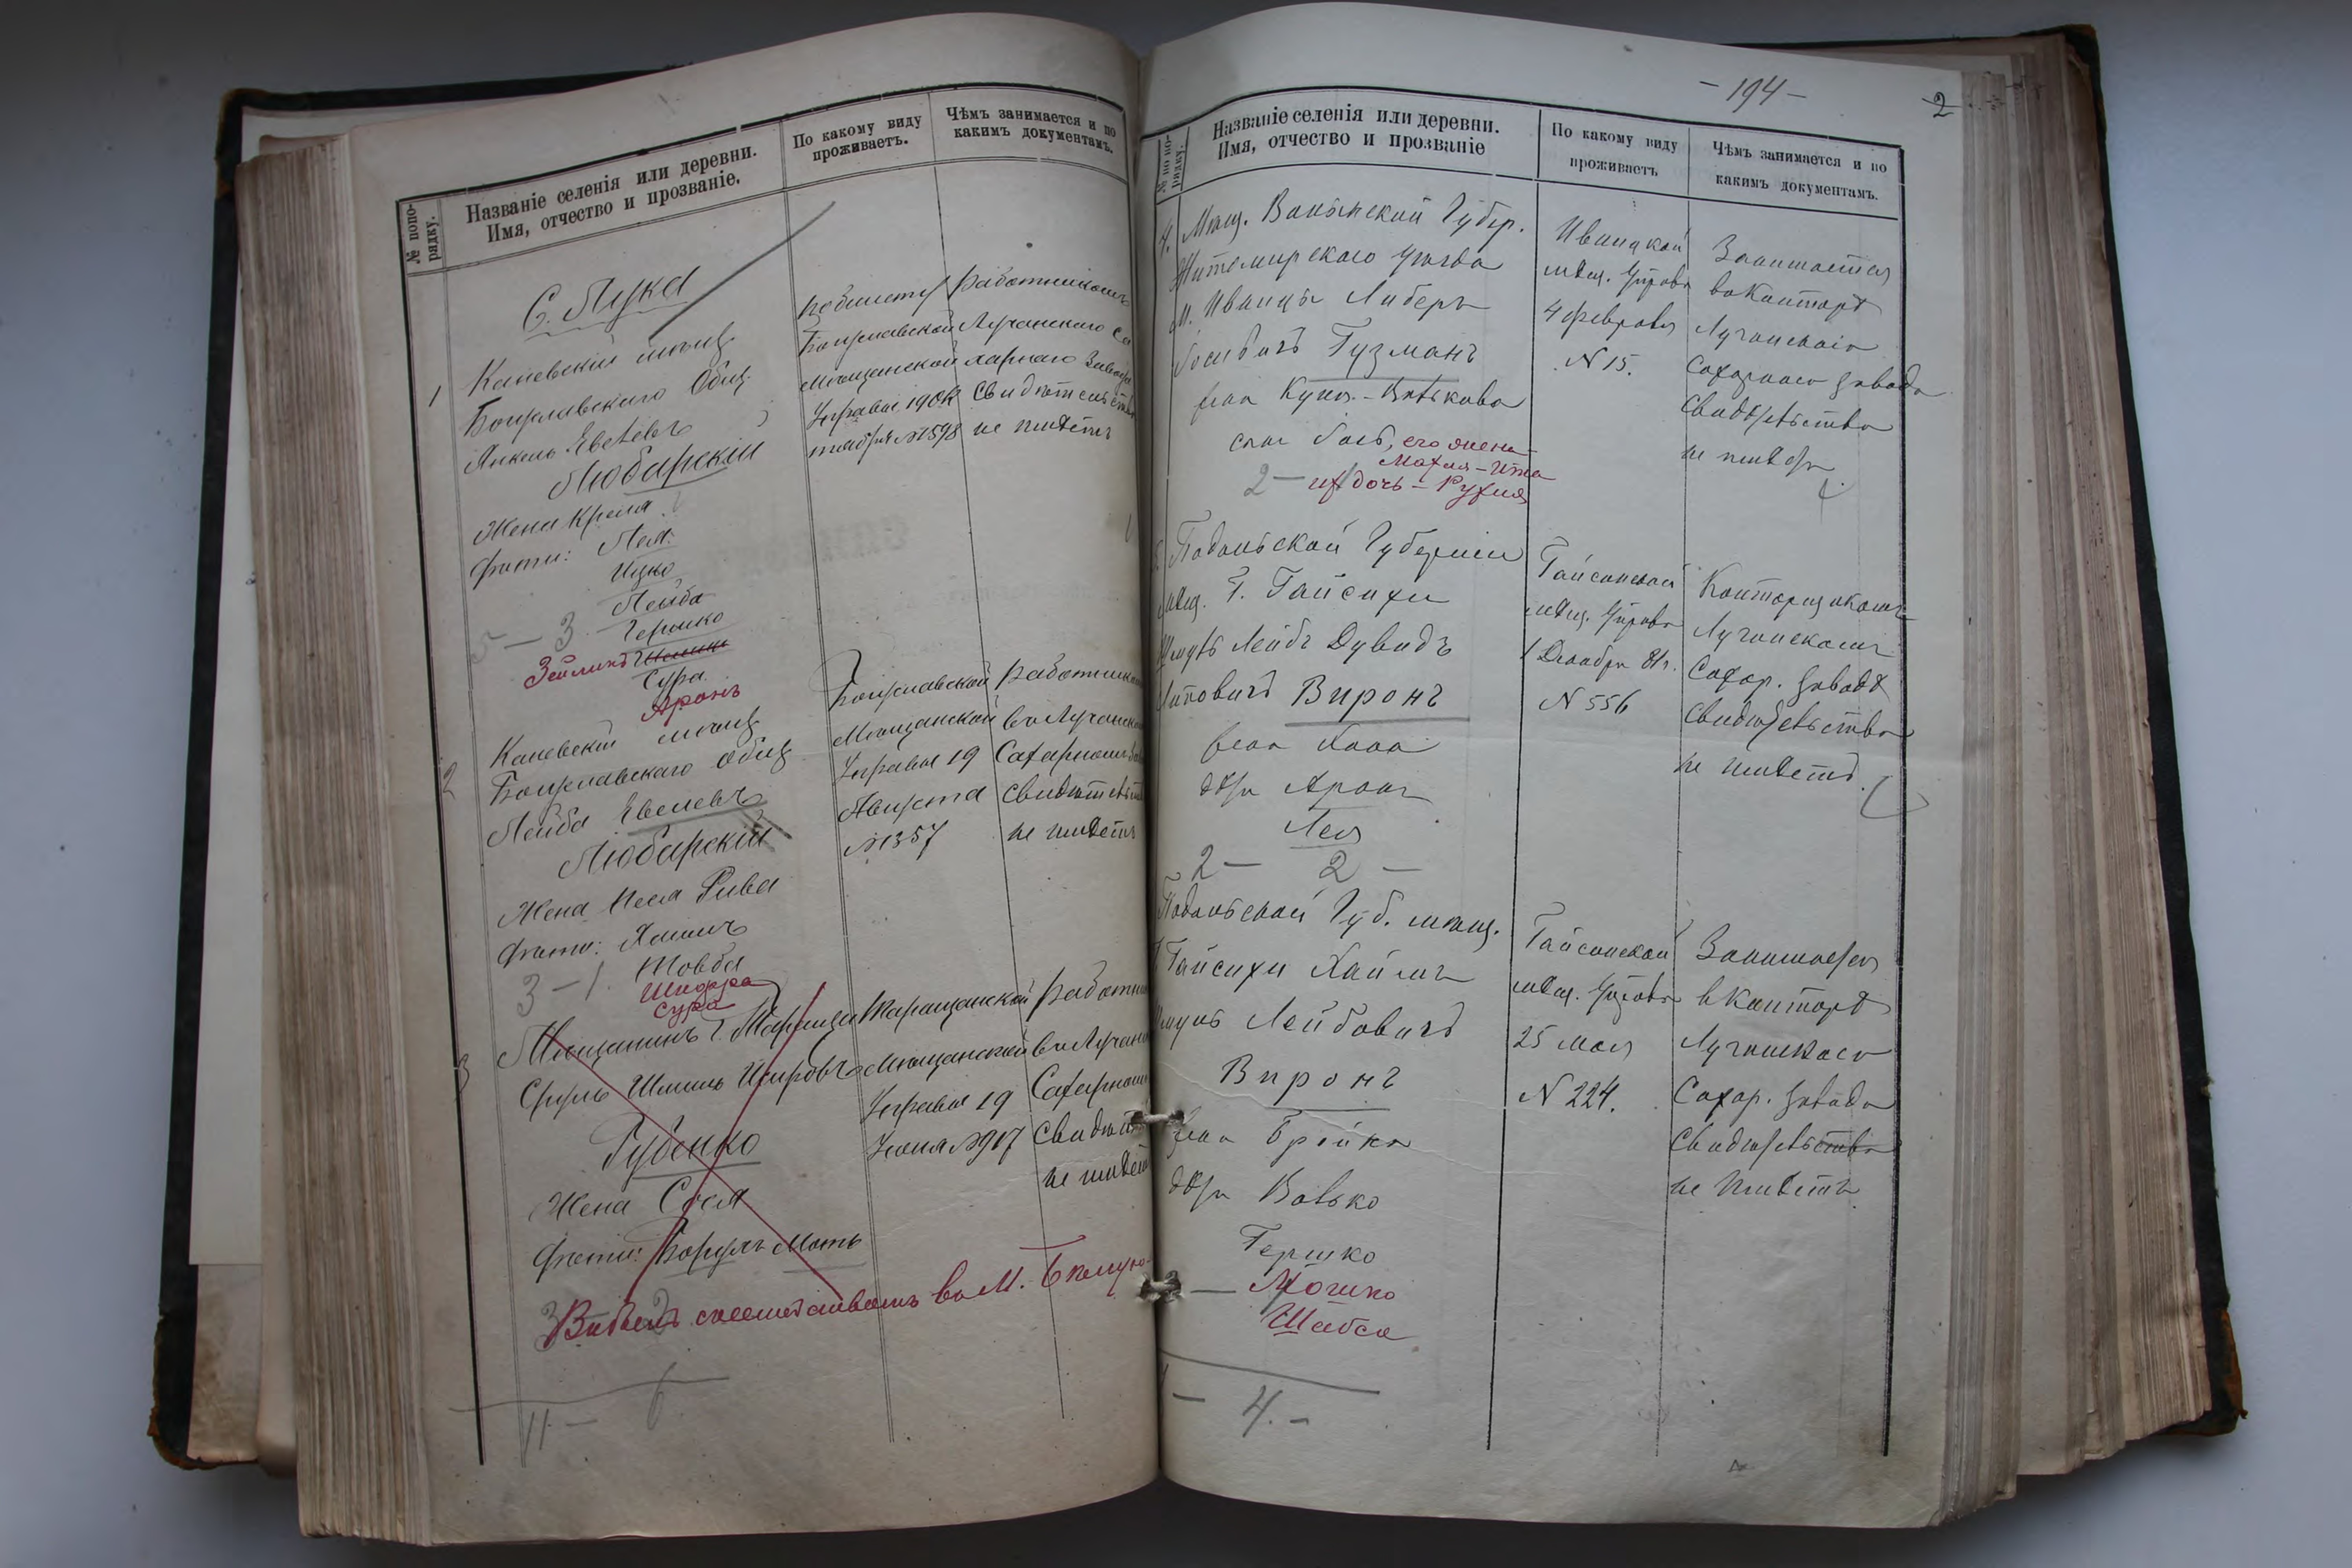 № попо-
рядку.
Названіе селенія или деревни.
Имя, отчество и прозваніе.
По какому виду
проживаетъ.
Чѣмъ занимается и по
какимъ документамъ.
С. Лука
1
Каневскій мѣщ.
Богуславскаго Общ.
Янкель Евелевъ
Любарскій
Жена Крейза
Дѣти: Лея
Ицко
Лейба
5 — 3
Гершко
Зейликъ
Сура
Аронъ
Богуславской
Мѣщанской
Управы 19 Ок
тября №1598
Работникомъ
Лучанскаго Са
харнаго Завода
Свидѣтельства
не имѣетъ
2
Каневскій мѣщ
Богуславскаго Общ
Лейба Евелевъ
Любарскій
Жена Неся Рива
Дѣти: Хаимъ
3 — 1.
Товба
Шифра
Сура
Богуславской
Мѣщанской
Управы 19
Августа
№1357
Работнико
въ Лучанско
Сахарномъ За
Свидѣтельст
не имѣетъ
3
Мѣщанинъ г. Таращи
Сруль Шмиль
Губенко
Жена Сося
Дѣти: Борухъ Моть
Таращанской
Мѣщанской
Управы 19
Іюня №917
Работни
въ Лучан
Сахарном
Свидѣт
не имѣет
Выбылъ съ семействомъ въ М.
11 — 6
— 194 —
2
№ по по-
рядку.
Названіе селенія или деревни.
Имя, отчество и прозваніе
По какому виду
проживаетъ
Чѣмъ занимается и по
какимъ документамъ.
4.
Мѣщ. Волынской Губер.
Житомирскаго уѣзда
м. Ивницы Либеръ
Іосивичъ Гузманъ
сынъ Іось, его жена
Махля-Ита
2 — ихъ дочь — Рухля
Ивницкой
мѣщ. Управы
4 февраля
N 15.
Занимается
въ Конторѣ
Лучанскаго
Сахарнаго завода
Свидѣтельства
не имѣетъ
Подольской Губерніи
мѣщ. г. Гайсина
Шмуль Лейбъ Дувидъ
Випронъ
жена Хана
дѣти Аронъ
Лея
2 — 2 —
Гайсинской
мѣщ. Управы
1 Декабря 81 г.
N 556
Конторщикомъ
Лучанскомъ
Сахар. заводѣ
Свидѣтельства
не имѣетъ
Подольской Губ. мѣщ.
Гайсина Хаимъ
Шмуль Лейбовичъ
Випронъ
жена Брейна
дѣти Волько
Гершко
— Мошко
Шабса
Гайсинской
мѣщ. Управы
25 мая
N 224.
Занимается
въ Конторѣ
Лучанскаго
Сахар. завода
Свидѣтельства
не имѣетъ
— 4. —